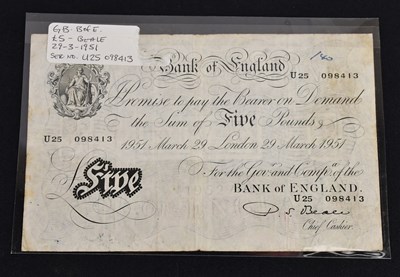 GB. BOFE
£5 - BEALE
29-3-1951
SER NO. U25 098413
Bank of England
U25 098413
I Promise to pay the Bearer on Demand
the Sum of Five Pounds
U25 098413
1951 March 29 London 29 March 1951
For the Govr. and Compa. of the
BANK OF ENGLAND.
U25 098413
Five
P. S. Beale
Chief Cashier.